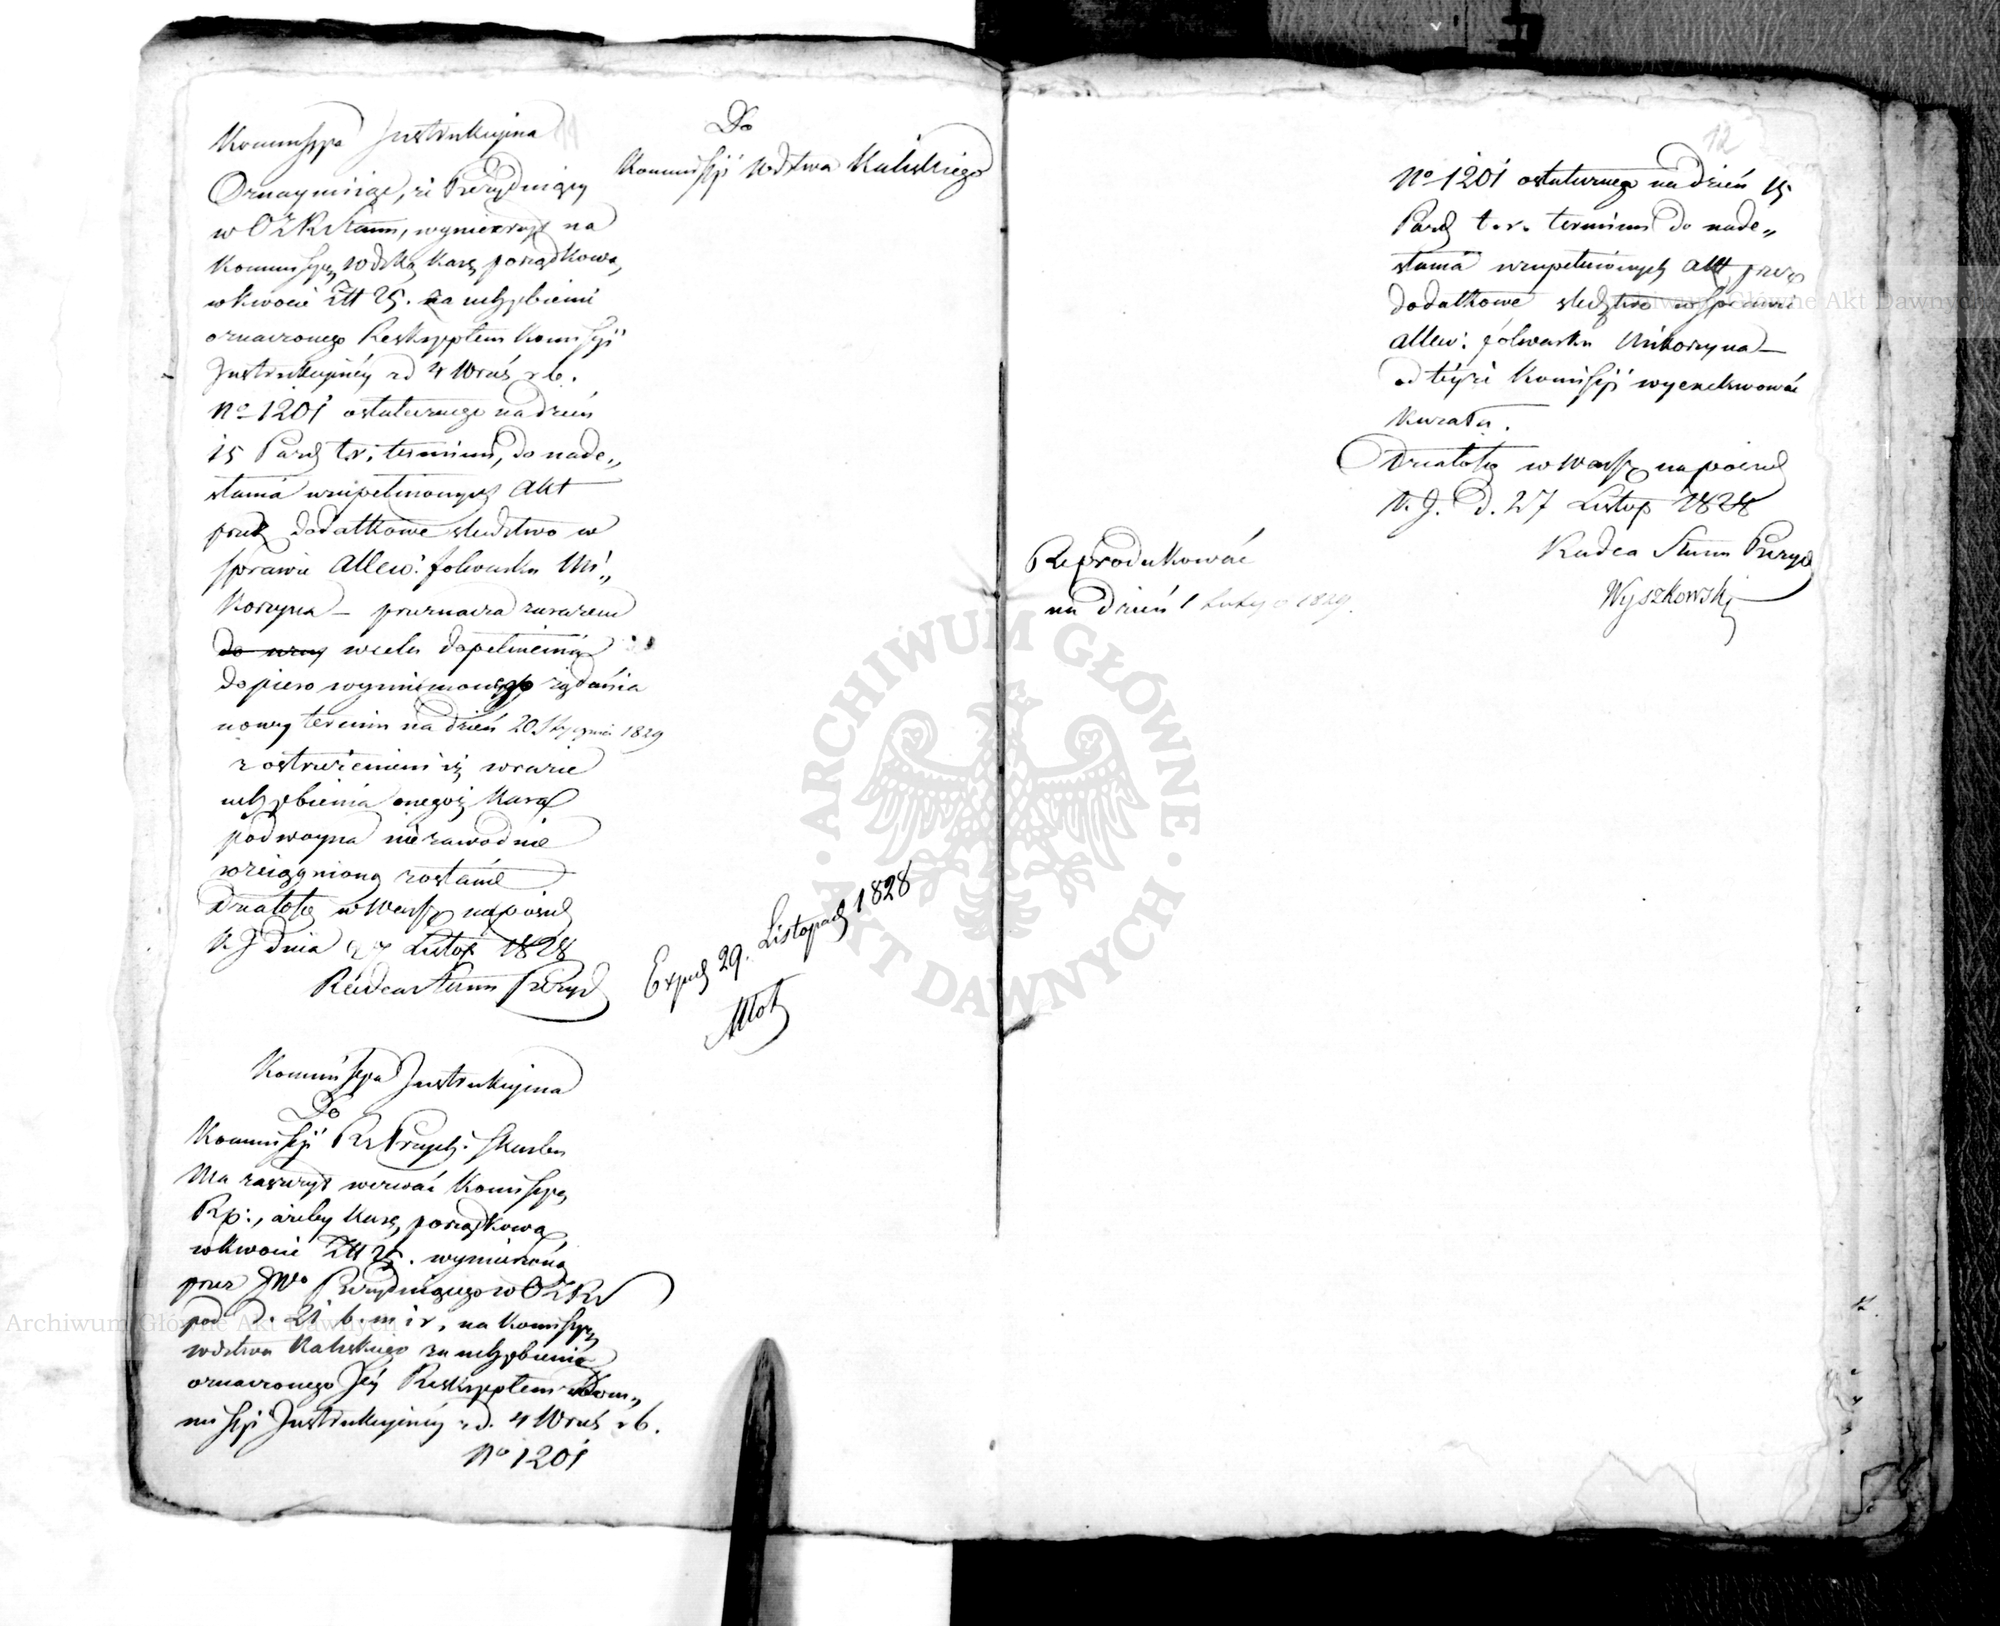 Kommissya Instrukcyjna
Do
Kommissyi Wdztwa Kaliskiego
Oznaymuiąc, że Prezyduiący
w, wymierzył na
Kommissyę Wdzką karę porządkową,
w kwocie Złł 25. za uchybienie
oznaczonego Reskryptem Kommissyi
Instrukcyiney z d 4 Wrześ r b.
No 1201 ostatecznego na dzień
15 Paźd t. r. terminu, do nade„
słania uzupełnionych Akt
przez dodatkowe śledztwo w
sprawie Allew: folwarku Mi„
korzyna — przeznacza zarazem
celem dopełnienia
dopiero wymienionego żądania
nowy termin na dzień 20 Stycznia 1829
z ostrzeżeniem iż w razie
uchybienia onegoż kara
podwoyna niezawodnie
ściągnioną zostanie
Działo się w Warsz na posied
K. J dnia 27 Listop 1828
Radca Stanu Prezyd
Exped 29. Listopad 1828
Kommissya Instrukcyjna
Do
Kommissyi Rz Przych: i Skarbu
Ma zaszczyt wezwać Kommissyę
Rz:, ażeby karę porządkową
w kwocie Złł 25. wymierzoną
przez JWo Prezyduiącego w
pod d. 21 b. m i r, na Kommissyę
Wdztwa Kaliskiego za uchybienie
oznaczonego Jey Reskryptem Kom„
missyi Instrukcyiney z d. 4 Wrześ r b.
No 1201
12
No 1201 ostatecznego na dzień 15
Paźd t. r. terminu do nade„
słania uzupełnionych Akt przez
dodatkowe śledztwo w sprawie
Allew: folwarku Mikorzyna —
od teyże Kommissyi wyexekwować
kazała.
Działo się w Warsz na posied
K. J. d. 27 Listop 1828
Radca Stanu Prezyd
Wyszkowski
Reprodukować
na dzień 1 Lutego 1829.
ARCHIWUM GŁÓWNE AKT DAWNYCH
Archiwum Główne Akt Dawnych
Archiwum Główne Akt Dawnych